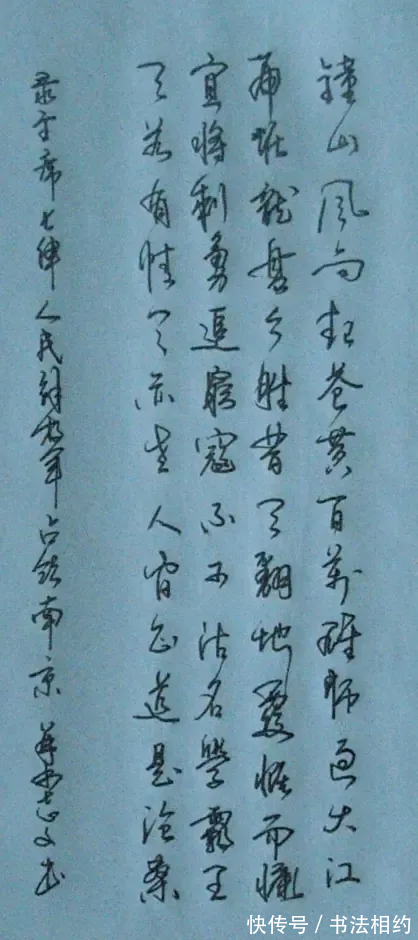 鐘山風雨起苍黄百萬雄师过大江
虎踞龍盘今胜昔天翻地覆慨而慷
宜将剩勇追窮寇不可沽名學霸王
天若有情天亦老人间正道是沧桑
录主席七律人民解放军占领南京 书
快传号 / 书法相约